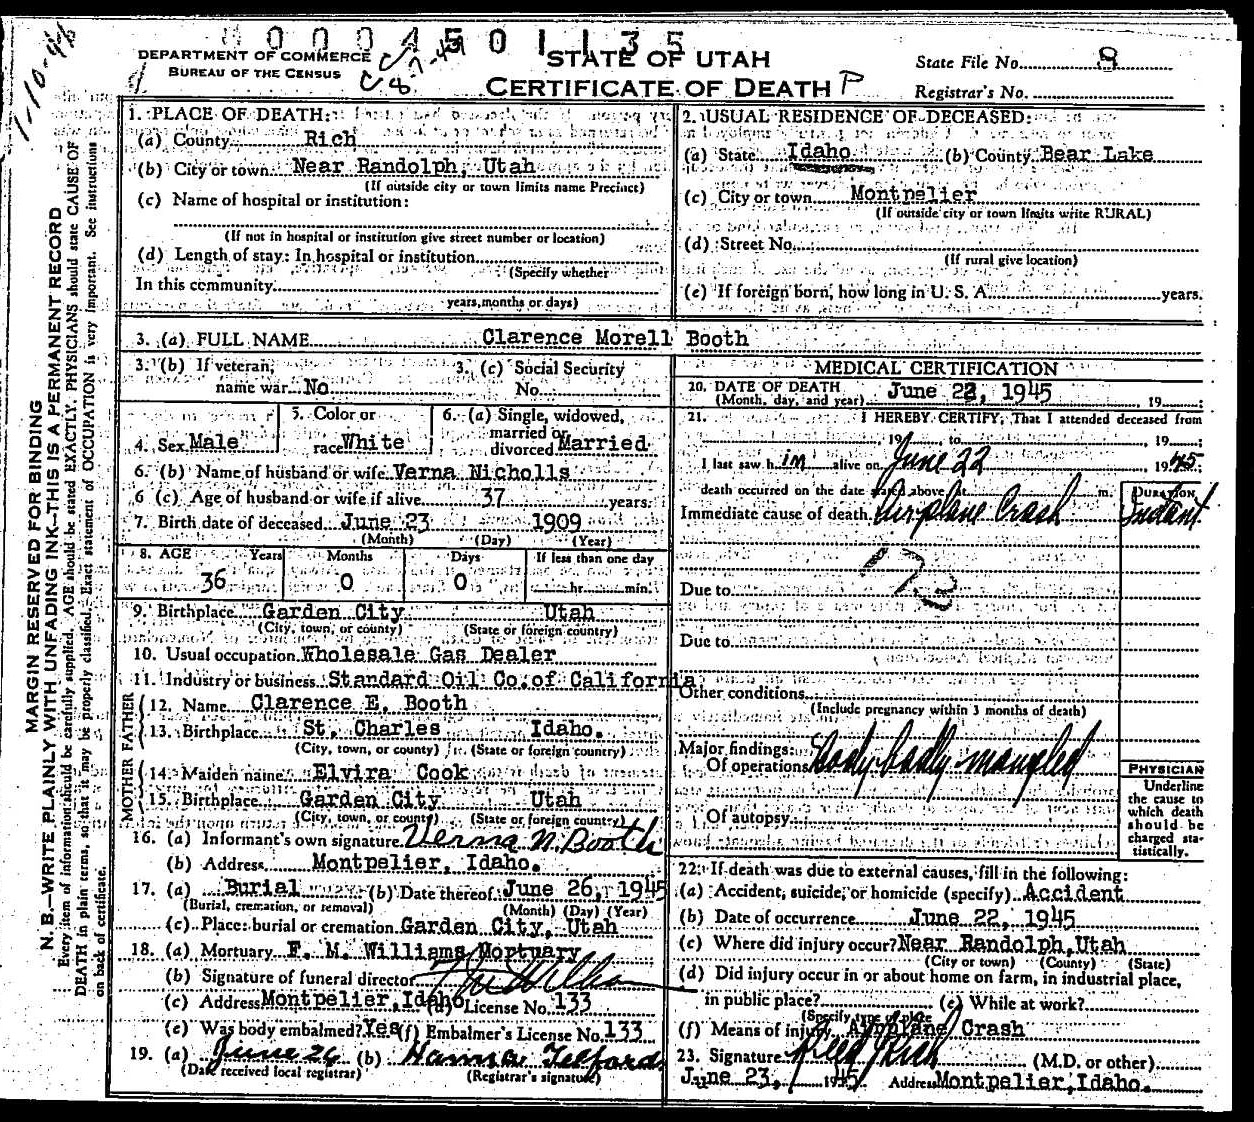 0004501135
1-10-46
DEPARTMENT OF COMMERCE
BUREAU OF THE CENSUS
C 8-7-45
STATE OF UTAH
CERTIFICATE OF DEATH P
State File No. 8
Registrar's No.
MARGIN RESERVED FOR BINDING
N. B.—WRITE PLAINLY WITH UNFADING INK—THIS IS A PERMANENT RECORD
Every item of information should be carefully supplied. AGE should be stated EXACTLY. PHYSICIANS should state CAUSE OF
DEATH in plain terms, so that it may be properly classified. Exact statement of OCCUPATION is very important. See instructions
on back of certificate.
1. PLACE OF DEATH:
(a) County Rich
(b) City or town Near Randolph, Utah
(If outside city or town limits name Precinct)
(c) Name of hospital or institution:
(If not in hospital or institution give street number or location)
(d) Length of stay: In hospital or institution
(Specify whether
In this community
years, months or days)
2. USUAL RESIDENCE OF DECEASED:
(a) State Idaho (b) County Bear Lake
(c) City or town Montpelier
(If outside city or town limits write RURAL)
(d) Street No.
(If rural give location)
(e) If foreign born, how long in U. S. A. years.
3. (a) FULL NAME Clarence Morell Booth
3. (b) If veteran, name war No
3. (c) Social Security No.
4. Sex Male
5. Color or race White
6. (a) Single, widowed, married or divorced Married
6. (b) Name of husband or wife Verna Nicholls
6 (c) Age of husband or wife if alive 37 years.
7. Birth date of deceased June 23 1909
(Month) (Day) (Year)
8. AGE Years Months Days If less than one day
36 0 0 hr. min.
9. Birthplace Garden City Utah
(City, town, or county) (State or foreign country)
10. Usual occupation Wholesale Gas Dealer
11. Industry or business Standard Oil Co. of California
FATHER
12. Name Clarence E. Booth
13. Birthplace St. Charles Idaho.
(City, town, or county) (State or foreign country)
MOTHER
14. Maiden name Elvira Cook
15. Birthplace Garden City Utah
(City, town, or county) (State or foreign country)
16. (a) Informant's own signature Verna N. Booth
(b) Address Montpelier, Idaho.
17. (a) Burial (b) Date thereof June 26, 1945
(Burial, cremation, or removal) (Month) (Day) (Year)
(c) Place: burial or cremation Garden City, Utah
18. (a) Mortuary F. M. Williams Mortuary
(b) Signature of funeral director
(c) Address Montpelier, Idaho (d) License No. 133
(e) Was body embalmed? Yes (f) Embalmer's License No. 133
19. (a) June 26 (b) Hanna Telford
(Date received local registrar) (Registrar's signature)
MEDICAL CERTIFICATION
20. DATE OF DEATH June 22, 1945
(Month, day, and year) 19
21. I HEREBY CERTIFY, That I attended deceased from
, 19 , to , 19 ;
I last saw h im alive on June 22, 1945;
death occurred on the date stated above at m.
DURATION
Immediate cause of death Airplane Crash Instant
73
Due to
Due to
Other conditions
(Include pregnancy within 3 months of death)
Major findings:
Of operations Body badly mangled
Of autopsy
PHYSICIAN
Underline
the cause to
which death
should be
charged sta-
tistically.
22. If death was due to external causes, fill in the following:
(a) Accident, suicide, or homicide (specify) Accident
(b) Date of occurrence June 22, 1945
(c) Where did injury occur? Near Randolph, Utah
(City or town) (County) (State)
(d) Did injury occur in or about home on farm, in industrial place,
in public place? (e) While at work?
(Specify type of place
(f) Means of injury Airplane Crash
23. Signature Reed J Rich (M.D. or other)
June 23, 1945 Address Montpelier, Idaho.